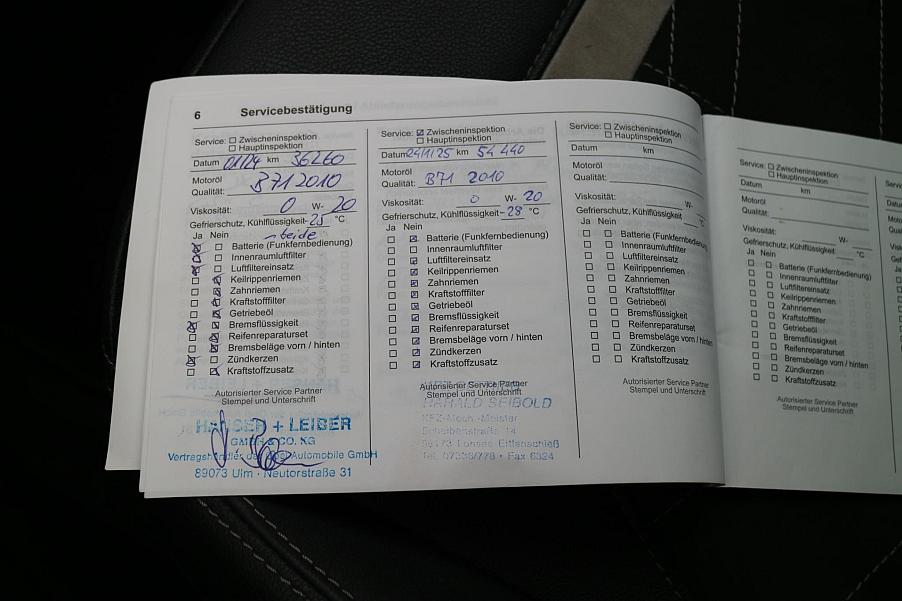 6 Servicebestätigung
Service: Zwischeninspektion
Hauptinspektion
Datum 01/24 km 36260
Motoröl
Qualität: B71 2010
Viskosität: 0 W- 20
Gefrierschutz, Kühlflüssigkeit -25 °C
Ja Nein
Batterie (Funkfernbedienung)
Innenraumluftfilter
Luftfiltereinsatz
Keilrippenriemen
Zahnriemen
Kraftstofffilter
Getriebeöl
Bremsflüssigkeit
Reifenreparaturset
Bremsbeläge vorn / hinten
Zündkerzen
Kraftstoffzusatz
Autorisierter Service Partner
Stempel und Unterschrift
HAUSER + LEIBER
GMBH & CO. KG
Automobile GmbH
89073 Ulm · Neutorstraße 31
Service: Zwischeninspektion
Hauptinspektion
Datum 24/1/25 km 54440
Motoröl
Qualität: B71 2010
Viskosität: 0 W- 20
Gefrierschutz, Kühlflüssigkeit -28 °C
Ja Nein
Batterie (Funkfernbedienung)
Innenraumluftfilter
Luftfiltereinsatz
Keilrippenriemen
Zahnriemen
Kraftstofffilter
Getriebeöl
Bremsflüssigkeit
Reifenreparaturset
Bremsbeläge vorn / hinten
Zündkerzen
Kraftstoffzusatz
Autorisierter Service Partner
Stempel und Unterschrift
HARALD SEIBOLD
KFZ-Mech.-Meister
Scheibenstraße 14
89173 Lonsee-Ettlenschieß
Tel. 07336/778 · Fax 6324
Service: Zwischeninspektion
Hauptinspektion
Datum km
Motoröl
Qualität:
Viskosität: W-
Gefrierschutz, Kühlflüssigkeit
Ja Nein
Batterie (Funkfernbedienung
Innenraumluftfilter
Luftfiltereinsatz
Keilrippenriemen
Zahnriemen
Kraftstofffilter
Getriebeöl
Bremsflüssigkeit
Reifenreparaturset
Bremsbeläge vorn / hinten
Zündkerzen
Kraftstoffzusatz
Autorisierter Service Partner
Stempel und Unterschrift
Service: Zwischeninspektion
Hauptinspektion
Datum km
Motoröl
Qualität:
Viskosität: W-
Gefrierschutz, Kühlflüssigkeit °C
Ja Nein
Batterie (Funkfernbedienung)
Innenraumluftfilter
Luftfiltereinsatz
Keilrippenriemen
Zahnriemen
Kraftstofffilter
Getriebeöl
Bremsflüssigkeit
Reifenreparaturset
Bremsbeläge vorn / hinten
Zündkerzen
Kraftstoffzusatz
Autorisierter Service Partner
Stempel und Unterschrift